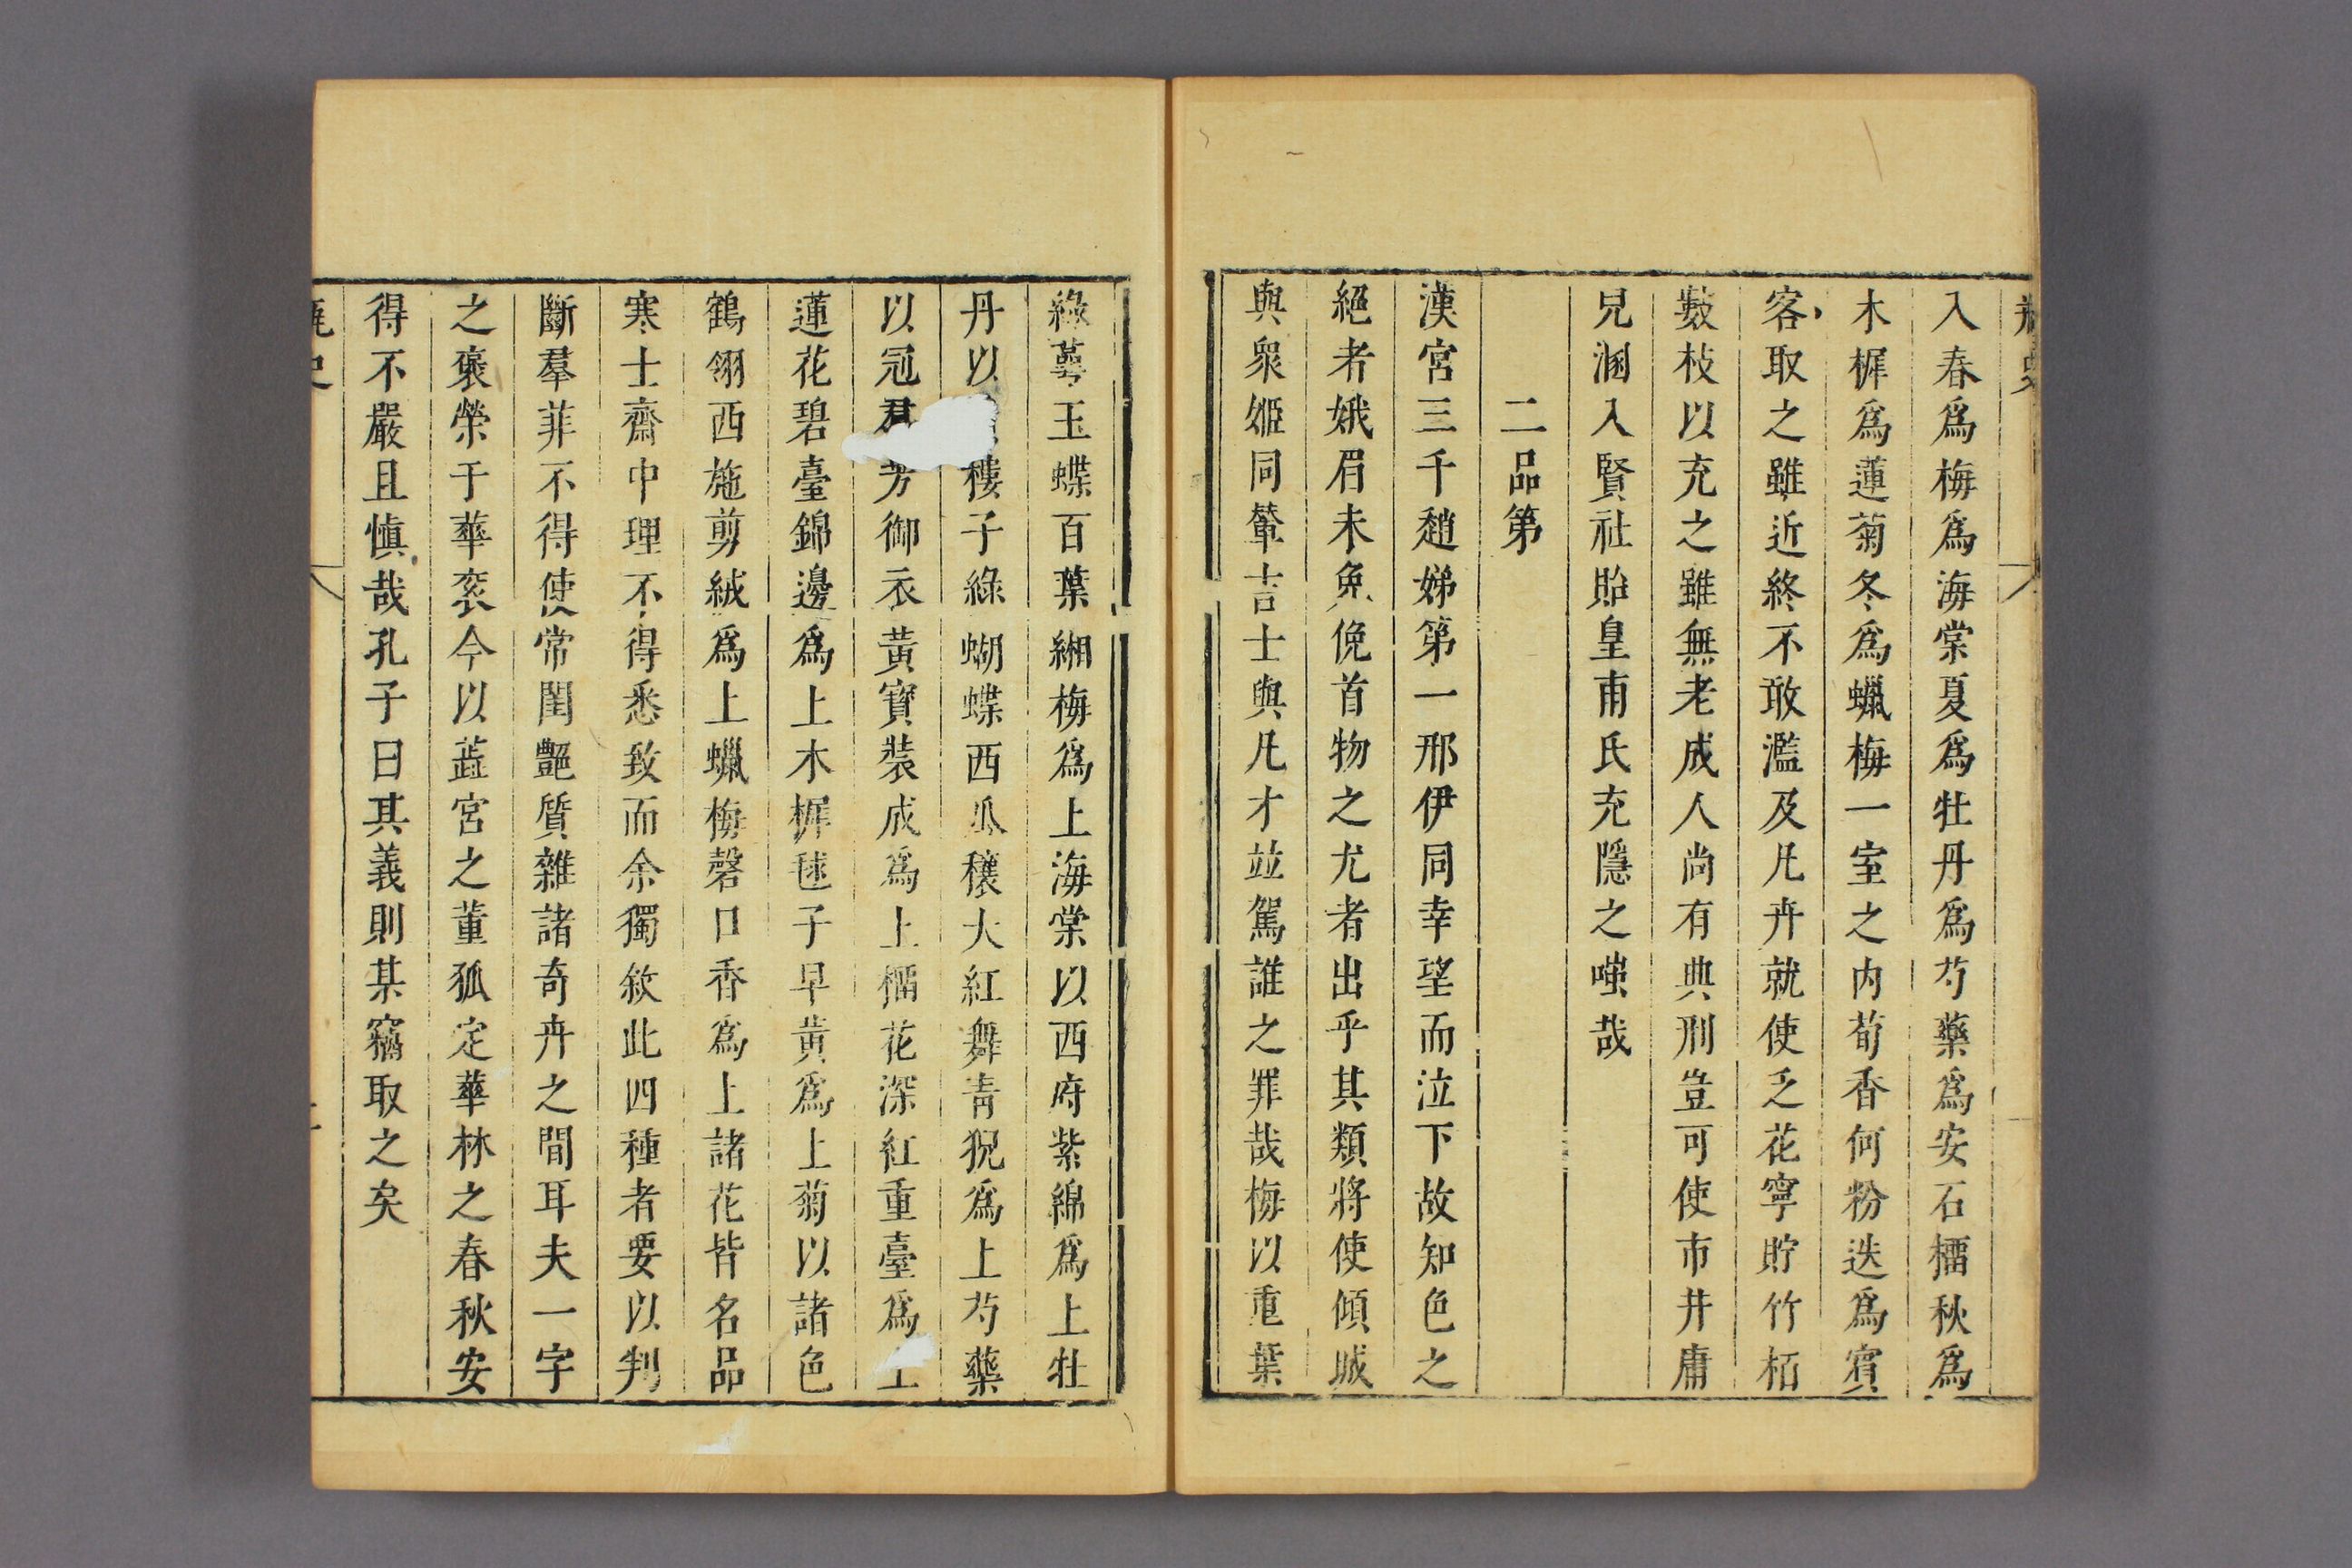 瓶史
入春爲梅爲海棠夏爲牡丹爲芍藥爲安石橊秋爲
木樨爲蓮菊冬爲蠟梅一室之内荀香何粉迭爲賓
客取之雖近終不敢濫及凡卉就使乏花寧貯竹栢
數枝以充之雖無老成人尚有典刑豈可使市井庸
兒溷入賢社貽皇甫氏充隱之嗤哉
二品第
漢宮三千趙娣第一邢伊同幸望而泣下故知色之
絕者娥眉未免俛首物之尤者出乎其類將使傾城
與衆姬同輦吉士與凡才並駕誰之罪哉梅以重葉
綠萼玉蝶百葉緗梅爲上海棠以西府紫綿爲上牡
丹以樓子綠蝴蝶西瓜穰大紅舞靑猊爲上芍藥
以冠芳御衣黃寶裝成爲上橊花深紅重臺爲上
蓮花碧臺錦邊爲上木樨毬子早黃爲上菊以諸色
鶴翎西施剪絨爲上蠟梅磬口香爲上諸花皆名品
寒士齋中理不得悉致而余獨敘此四種者要以判
斷羣菲不得使常閨艶質雜諸奇卉之間耳夫一字
之褒榮于華衮今以蕋宮之董狐定華林之春秋安
得不嚴且愼哉孔子曰其義則某竊取之矣
瓶史